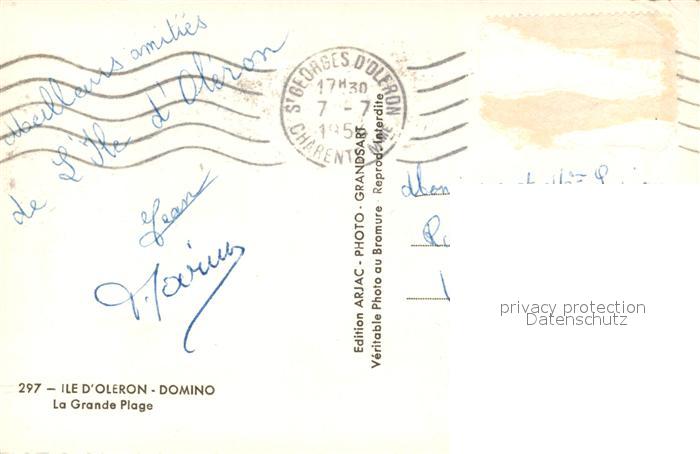 Meilleurs amitiés
de L'Ile d'Oléron
Jean
ST GEORGES D'OLERON
17H30
7 - 7
CHARENTE
Edition ARJAC - PHOTO - GRANDSART
Véritable Photo au Bromure Reprod. Interdite
privacy protection
Datenschutz
297 — ILE D'OLERON - DOMINO
La Grande Plage